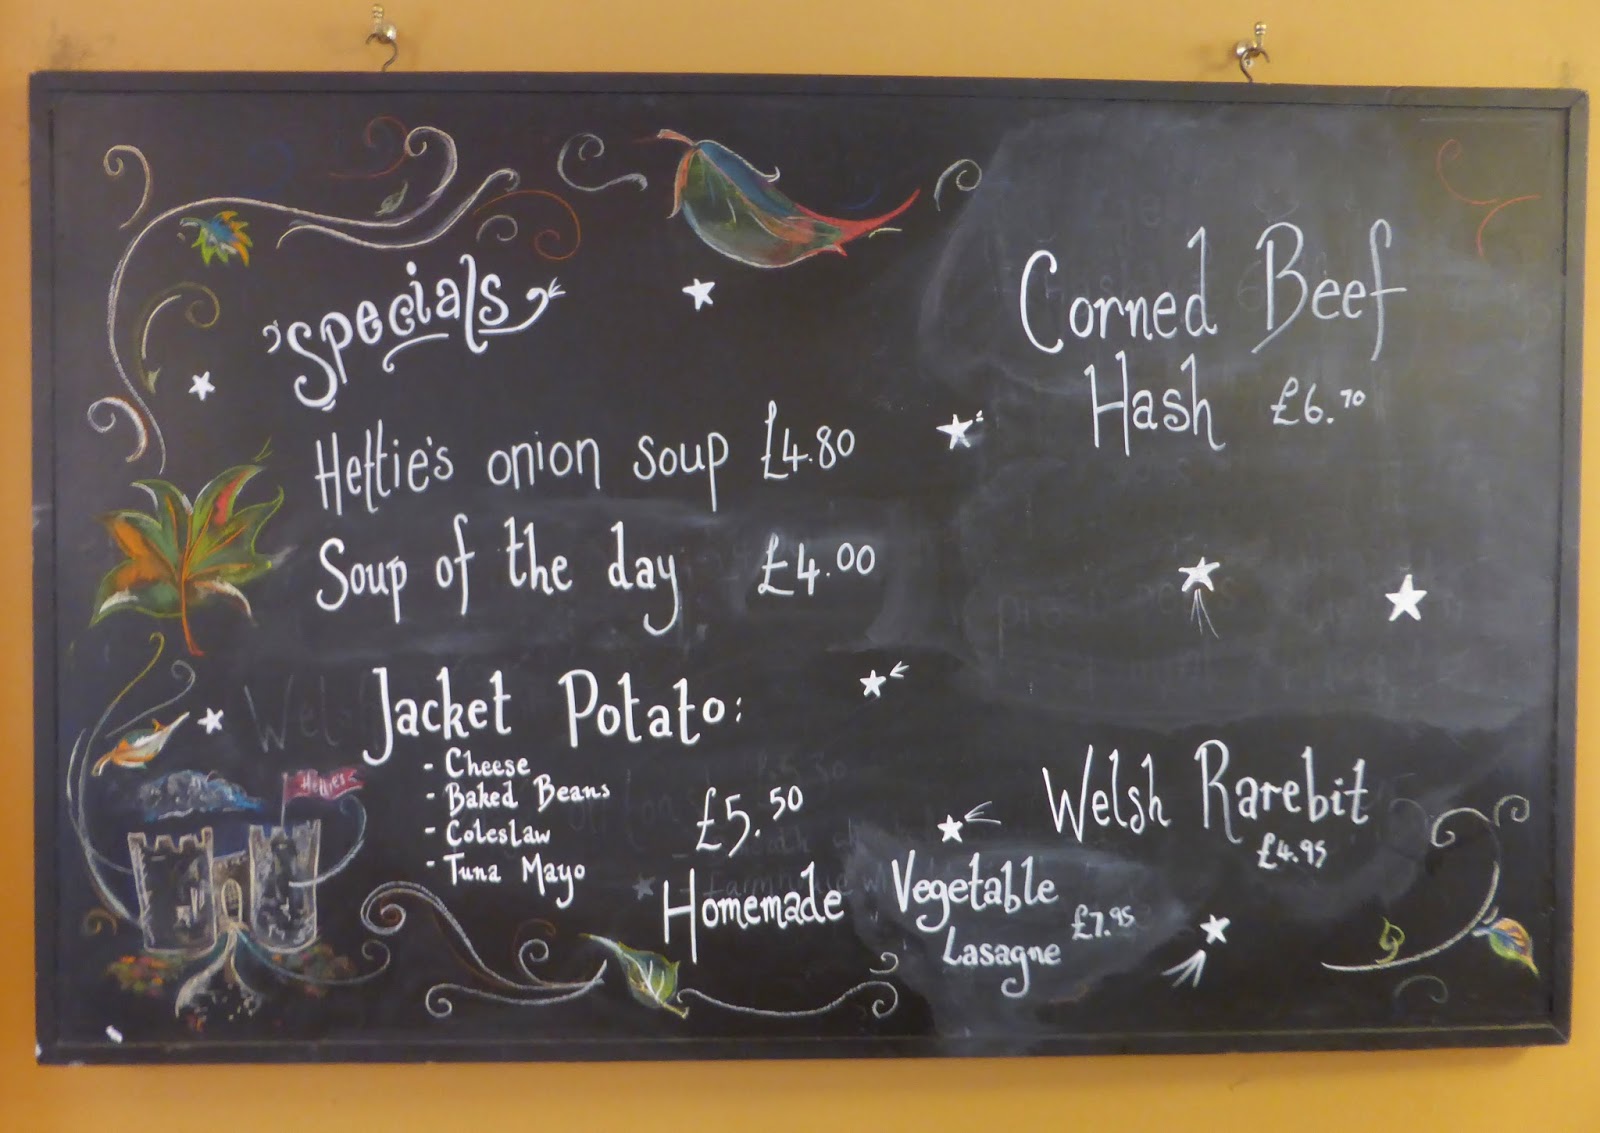 Specials
Hettie's onion soup £4.80
Soup of the day £4.00
Jacket Potato:
- Cheese
- Baked Beans
- Coleslaw
- Tuna Mayo
£5.50
Hetties
Homemade Vegetable
Lasagne £7.95
Corned Beef
Hash £6.70
Welsh Rarebit
£4.95